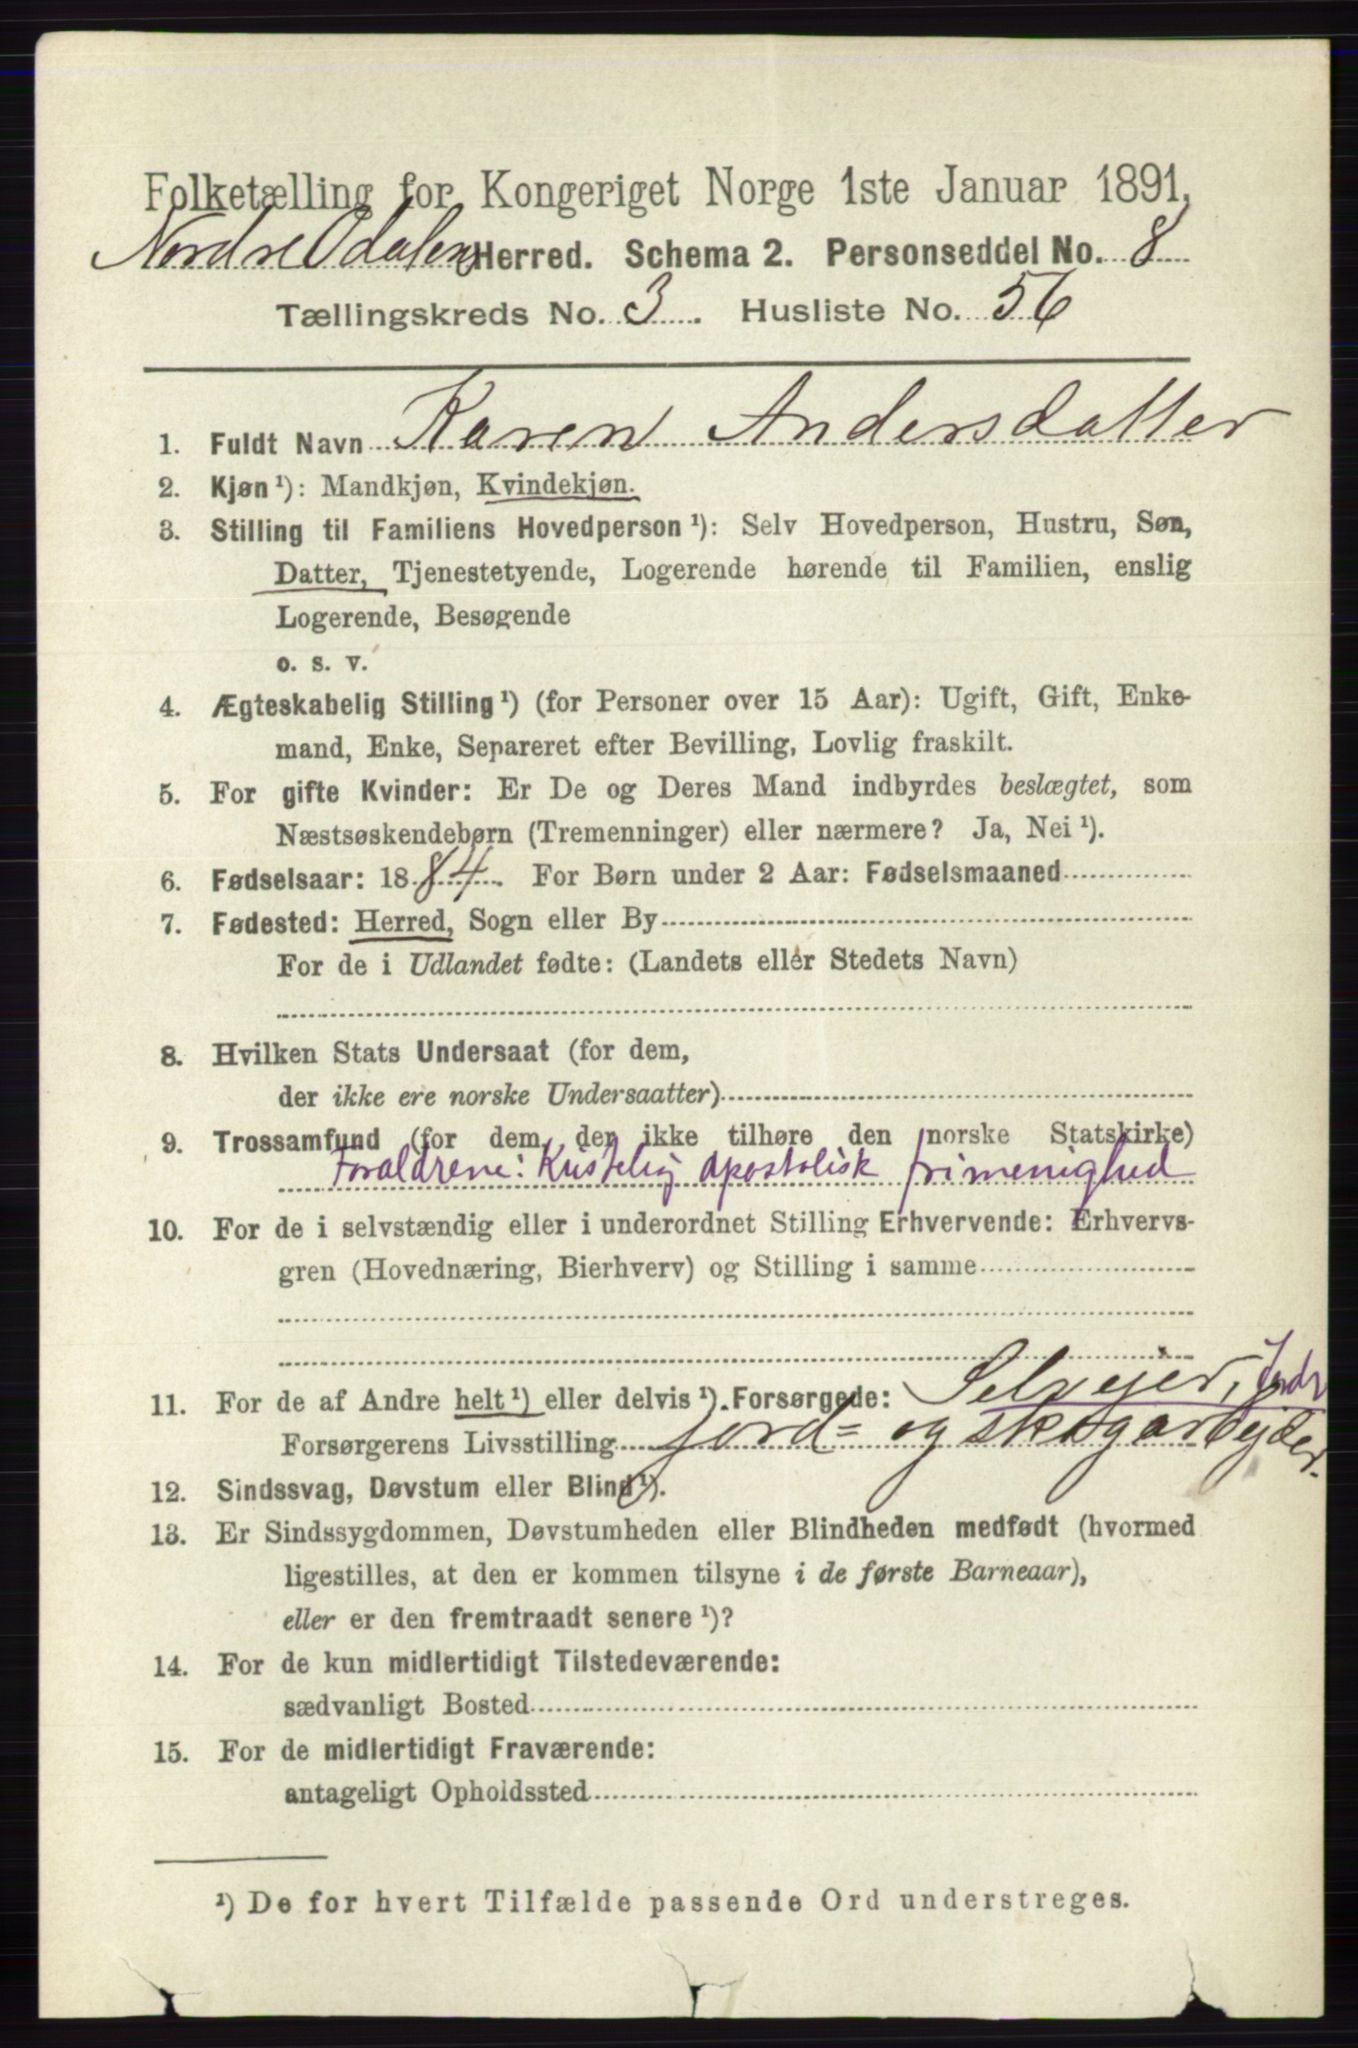 Folketælling for Kongeriget Norge 1ste Januar 1891.
Nordre Odalens Herred. Schema 2. Personseddel No. 8
Tællingskreds No. 3. Husliste No. 56
1. Fuldt Navn Karen Andersdatter
2. Kjøn ¹): Mandkjøn, Kvindekjøn.
3. Stilling til Familiens Hovedperson ¹): Selv Hovedperson, Hustru, Søn,
Datter, Tjenestetyende, Logerende hørende til Familien, enslig
Logerende, Besøgende
o. s. v.
4. Ægteskabelig Stilling ¹) (for Personer over 15 Aar): Ugift, Gift, Enke-
mand, Enke, Separeret efter Bevilling, Lovlig fraskilt.
5. For gifte Kvinder: Er De og Deres Mand indbyrdes beslægtet, som
Næstsøskendebørn (Tremenninger) eller nærmere? Ja, Nei ¹).
6. Fødselsaar: 1884. For Børn under 2 Aar: Fødselsmaaned
7. Fødested: Herred, Sogn eller By
For de i Udlandet fødte: (Landets eller Stedets Navn)
8. Hvilken Stats Undersaat (for dem,
der ikke ere norske Undersaatter)
9. Trossamfund (for dem, der ikke tilhøre den norske Statskirke)
Foraldrene: Kristelig apostolisk frimenighed
10. For de i selvstændig eller i underordnet Stilling Erhvervende: Erhvervs-
gren (Hovednæring, Bierhverv) og Stilling i samme
11. For de af Andre helt ¹) eller delvis ¹) Forsørgede: Selvejer, Jordr
Forsørgerens Livsstilling jord= og skogarbejder.
12. Sindssvag, Døvstum eller Blind ¹).
13. Er Sindssygdommen, Døvstumheden eller Blindheden medfødt (hvormed
ligestilles, at den er kommen tilsyne i de første Barneaar),
eller er den fremtraadt senere ¹)?
14. For de kun midlertidigt Tilstedeværende:
sædvanligt Bosted
15. For de midlertidigt Fraværende:
antageligt Opholdssted
¹) De for hvert Tilfælde passende Ord understreges.